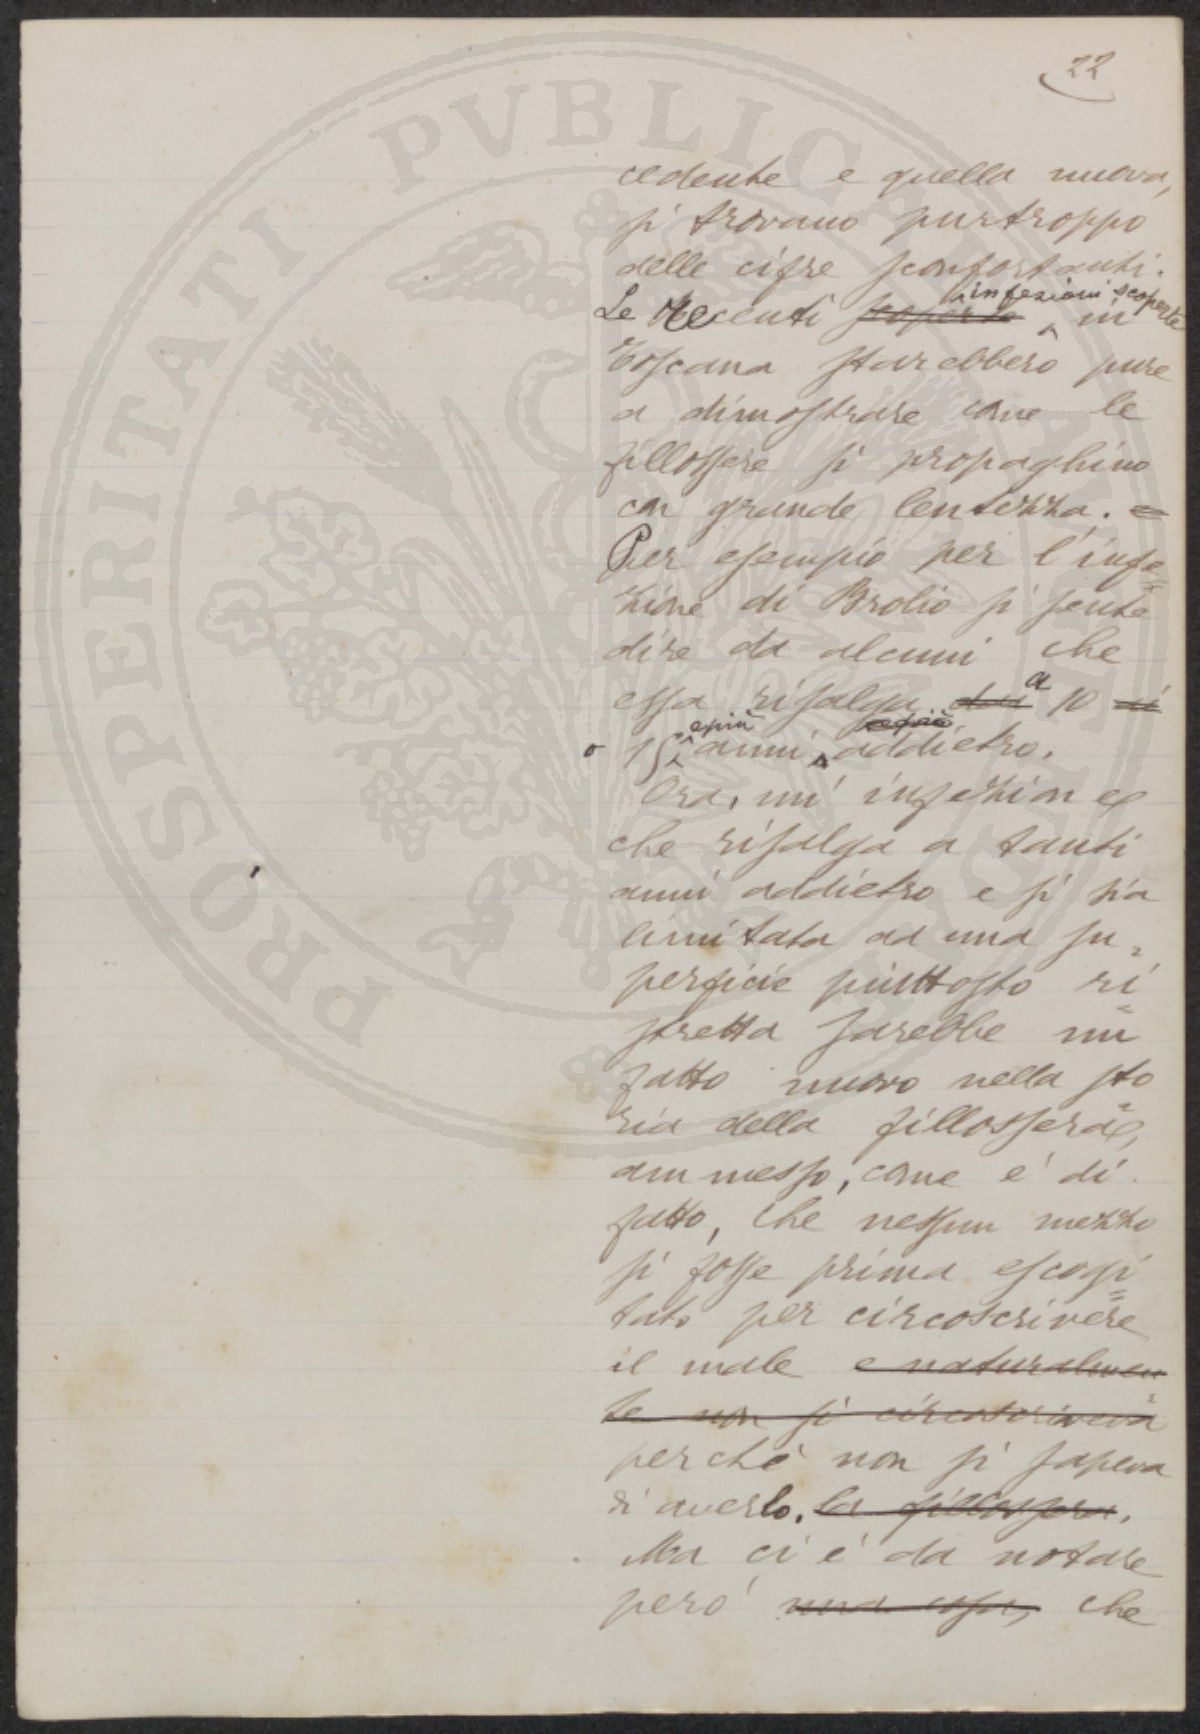 22
cedente e quella nuova,
si trovano purtroppo
delle cifre sconfortanti.
Le Recenti scoperte infezioni scoperte in
Toscana starebbero pure
a dimostrare come le
fillossere si propaghino
con grande lentezza. e
Per esempio per l'infe=
zione di Brolio si sente
dire da alcuni che
essa risalga dai a 10 ai
o 15 e più anni e più addietro.
Ora, un' infezione
che risalga a tanti
anni addietro e si sia
limitata ad una su=
perficie piuttosto ri=
stretta sarebbe un
fatto nuovo nella sto=
ria della fillossera,
ammesso, come è di
fatto, che nessun mezzo
si fosse prima escogi=
tato per circoscrivere
il male e naturalmen=
te non si circoscriveva
perchè non si sapeva
di averlo. la fillossera.
Ma ci è da notare
però una cosa, che
PROSPERITATI PVBLICAE